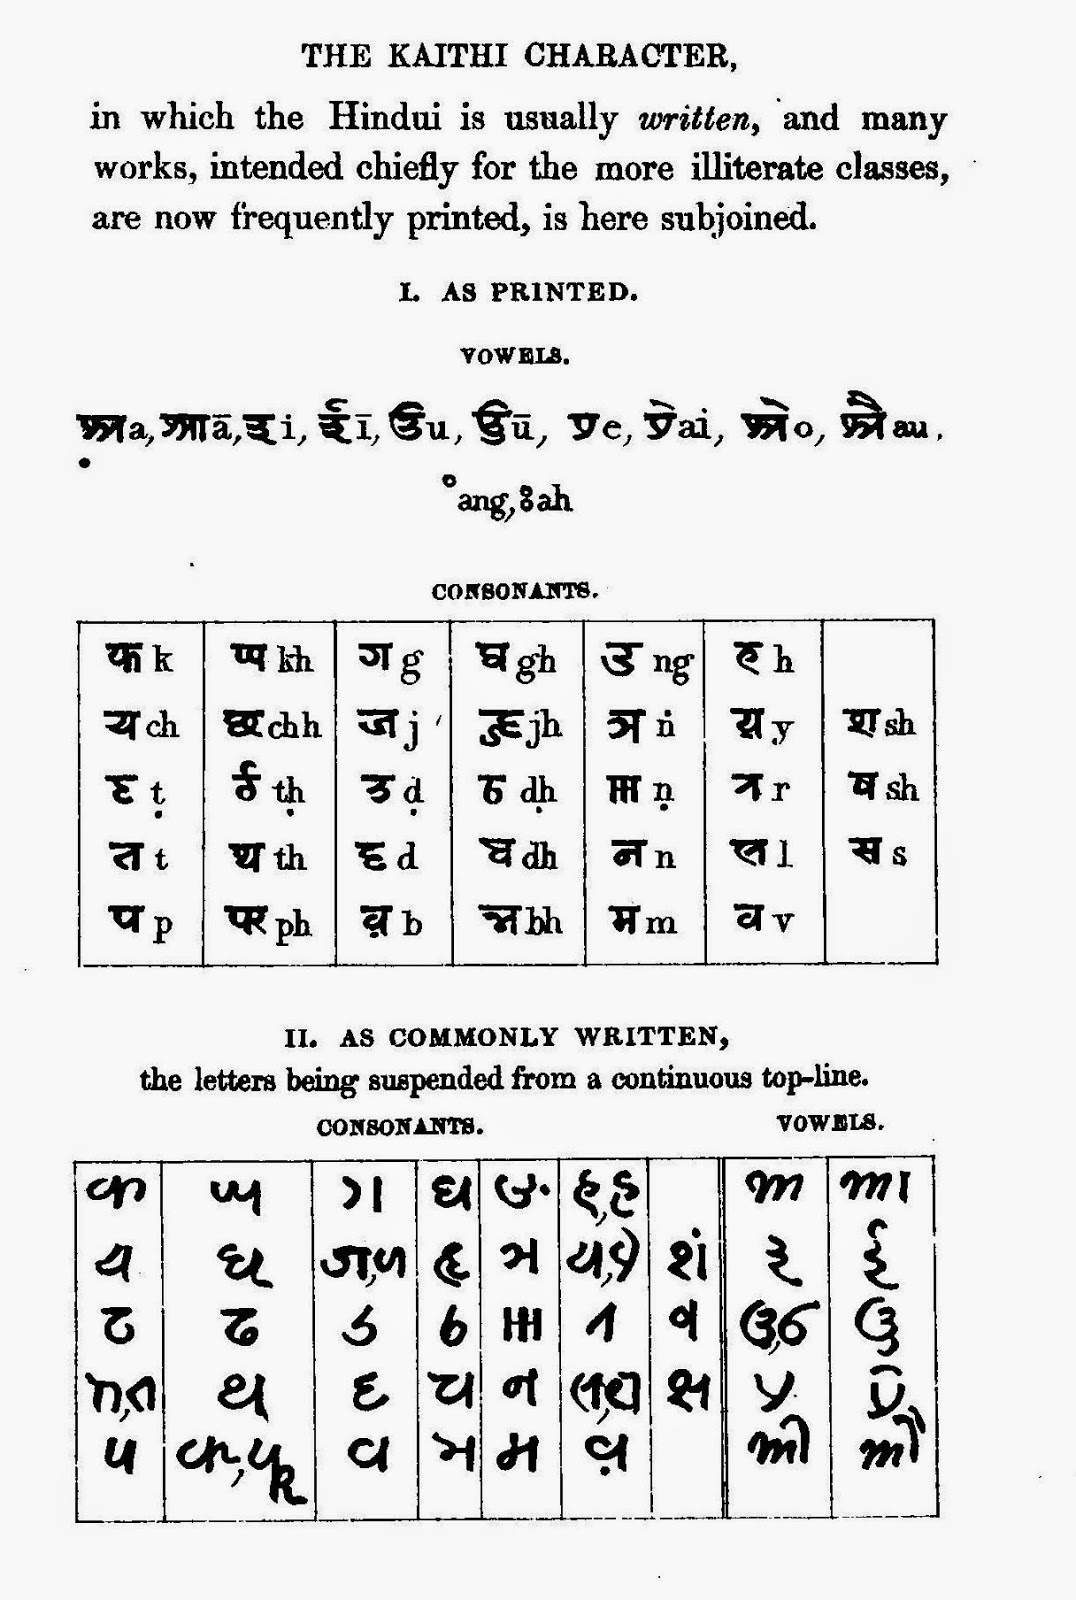 THE KAITHI CHARACTER,
in which the Hindui is usually written, and many
works, intended chiefly for the more illiterate classes,
are now frequently printed, is here subjoined.
I. AS PRINTED.
VOWELS.
𑂃 a, 𑂄 ā, 𑂅 i, 𑂆 ī, 𑂇 u, 𑂈 ū, 𑂉 e, 𑂊 ai, 𑂋 o, 𑂌 au.
ang, ah
CONSONANTS.
𑂍 k 𑂎 kh 𑂏 g 𑂐 gh 𑂑 ng 𑂯 h
𑂒 ch 𑂓 chh 𑂔 j 𑂕 jh 𑂖 ṅ 𑂨 y 𑂬 sh
𑂗 ṭ 𑂘 ṭh 𑂙 ḍ 𑂛 ḍh 𑂝 ṇ 𑂩 r 𑂭 sh
𑂞 t 𑂟 th 𑂠 d 𑂡 dh 𑂢 n 𑂪 l 𑂮 s
𑂣 p 𑂤 ph 𑂥 b 𑂦 bh 𑂧 m 𑂫 v
II. AS COMMONLY WRITTEN,
the letters being suspended from a continuous top-line.
CONSONANTS. VOWELS.
𑂍 𑂎 𑂏 𑂐 𑂑 𑂯, 𑂯 𑂃 𑂄
𑂒 𑂓 𑂔, 𑂔 𑂕 𑂖 𑂨, 𑂨 𑂅 𑂆
𑂗 𑂘 𑂙 𑂛 𑂝 𑂩 𑂭 𑂇, 𑂇 𑂈
𑂞, 𑂞 𑂟 𑂠 𑂡 𑂢 𑂪, 𑂪 𑂮 𑂉 𑂊
𑂣 𑂤, 𑂤 𑂥 𑂦 𑂧 𑂫 𑂋 𑂌